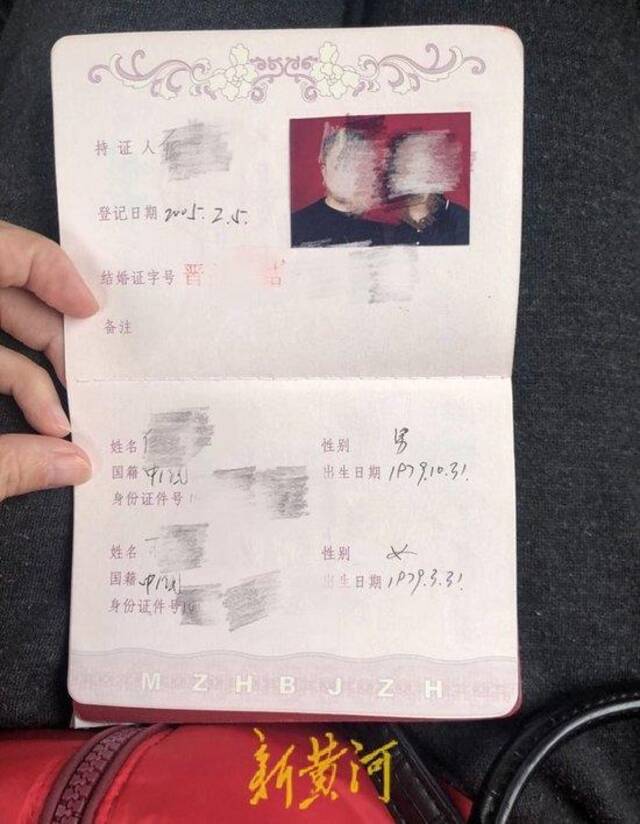 持证人
登记日期 2005.2.5.
结婚证字号 晋 结
备注
姓名
性别 男
国籍 中国
出生日期 1979.10.31.
身份证件号 1
姓名
性别 女
国籍 中国
出生日期 1979.3.31
身份证件号
MZHBJZH
新黄河